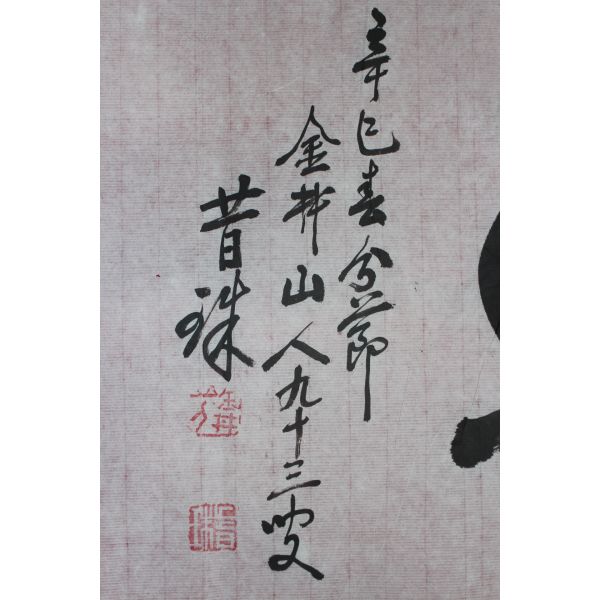 辛巳春分節
金井山人九十三叟
昔珠
昔珠